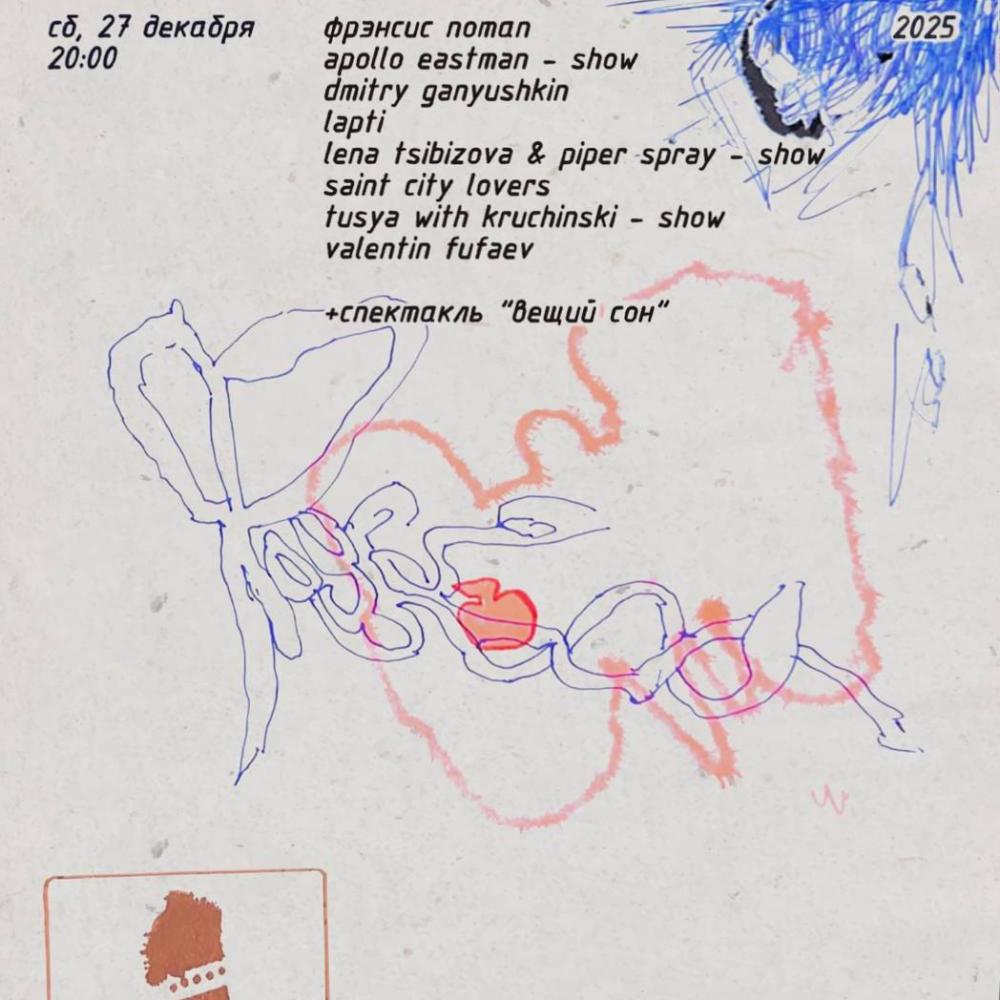 сб, 27 декабря
20:00
фрэнсис noman
apollo eastman - show
dmitry ganyushkin
lapti
lena tsibizova & piper spray - show
saint city lovers
tusya with kruchinski - show
valentin fufaev
+спектакль "вещий сон"
2025